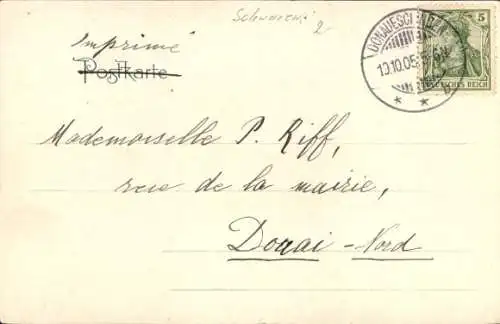 Schwarzw. 2
DONAUESCHINGEN
10.10.05.
5
DEUTSCHES REICH
Imprimé
Postkarte
Mademoiselle P. Riff,
rue de la mairie,
Douai - Nord